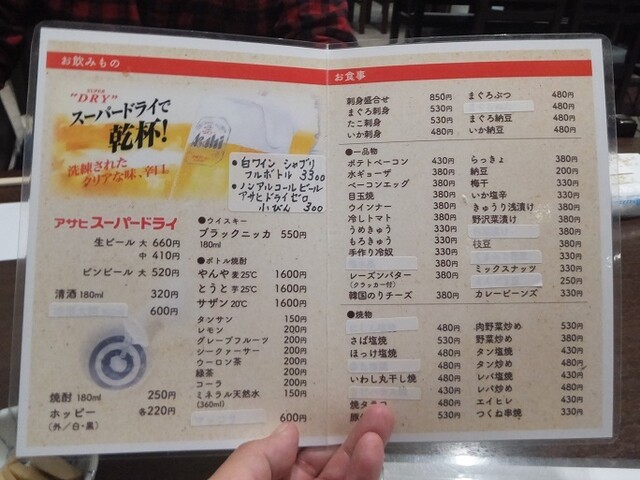 お飲みもの
SUPER
"DRY"
スーパードライで
乾杯!
洗練された
クリアな味、辛口。
Asahi
•白ワイン シャブリ
フルボトル 3300
•ノンアルコールビール
アサヒドライゼロ
小びん 300
アサヒスーパードライ
生ビール 大 660円
中 410円
ビンビール 大 520円
清酒 180ml 320円
600円
焼酎 180ml 250円
ホッピー 各220円
(外/白・黒)
●ウイスキー
ブラックニッカ 550円
180ml
●ボトル焼酎
やんや 麦25℃ 1600円
とうと 芋25℃ 1600円
サザン 20℃ 1600円
タンサン 150円
レモン 200円
グレープフルーツ 200円
シークヮーサー 200円
ウーロン茶 200円
緑茶 200円
コーラ 200円
ミネラル天然水 150円
(360ml)
600円
お食事
刺身盛合せ 850円
まぐろ刺身 530円
たこ刺身 530円
いか刺身 480円
まぐろぶつ 480円
480円
まぐろ納豆 480円
いか納豆 480円
●一品物
ポテトベーコン 430円
水ギョーザ 380円
ベーコンエッグ 380円
目玉焼 380円
ウインナー 380円
冷しトマト 380円
うめきゅう 330円
もろきゅう 330円
手作り冷奴 330円
380円
レーズンバター 380円
(クラッカー付)
韓国のりチーズ 380円
らっきょ 380円
納豆 200円
梅干 330円
いか塩辛 330円
きゅうり浅漬け 380円
野沢菜漬け 380円
380円
枝豆 380円
250円
ミックスナッツ 330円
250円
カレービーンズ 330円
●焼物
480円
さば塩焼 530円
ほっけ塩焼 480円
480円
いわし丸干し焼 480円
430円
焼タラコ 480円
豚 530円
肉野菜炒め 530円
野菜炒め 380円
タン塩焼 430円
タン炒め 480円
レバ塩焼 430円
レバ炒め 480円
エイヒレ 430円
つくね串焼 330円